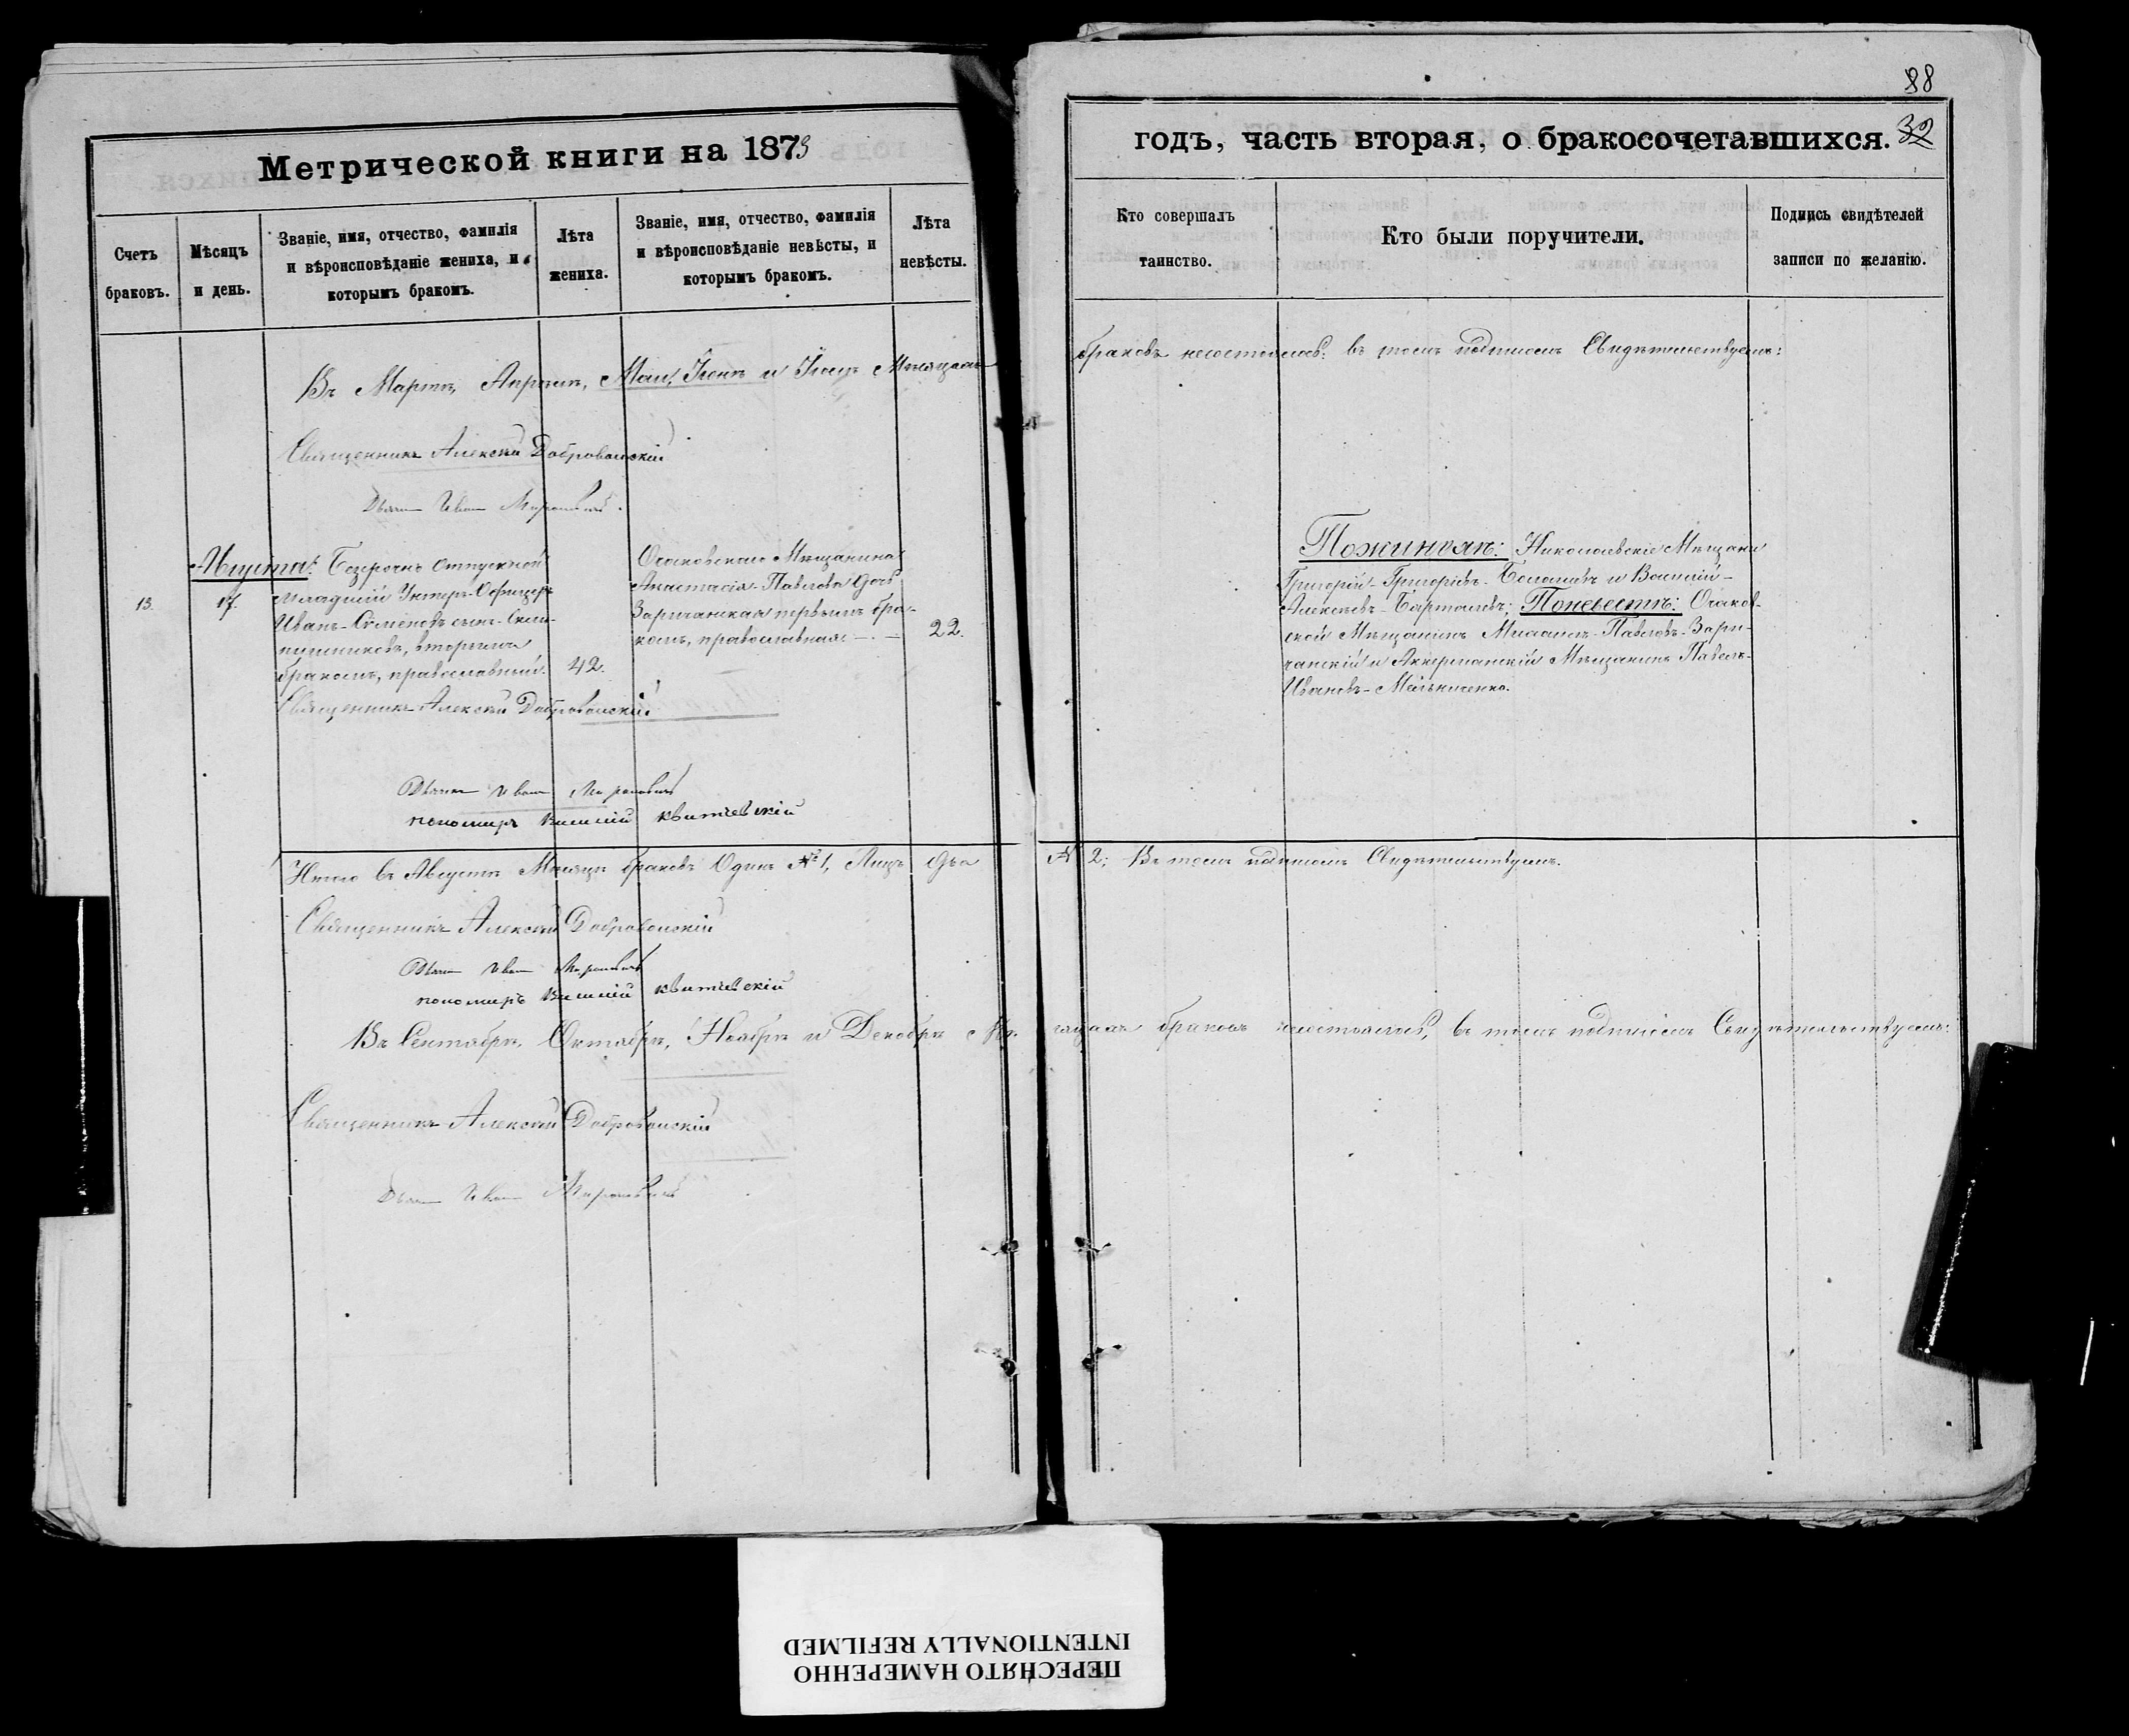 88
Метрической книги на 1873
годъ, часть вторая, о бракосочетавшихся. 32
Счетъ браковъ.
Мѣсяцъ и день.
Званіе, имя, отчество, фамилія
и вѣроисповѣданіе жениха, и
которымъ бракомъ.
Лѣта жениха.
Званіе, имя, отчество, фамилія
и вѣроисповѣданіе невѣсты, и
которымъ бракомъ.
Лѣта невѣсты.
Кто совершалъ
таинство.
Кто были поручители.
Подпись свидѣтелей
записи по желанію.
Въ Мартѣ, Апрѣлѣ, Маѣ, Іюнѣ и Іюлѣ Мѣсяцахъ
браковъ несостоялось: въ томъ подписомъ Свидѣтельствуемъ:
Священникъ Алексѣй Добровольскій
Дьячокъ Иванъ
Августа:
13.
17.
Безсрочно отпускной
младшій Унтеръ-Офицеръ
Иванъ-Семеновъ сынъ-
вторымъ
бракомъ, православный.
42.
Очаковскаго Мѣщанина
Анастасія-Павлова дочь
Заричанская первымъ бра-
комъ, православная.
22.
Пожинихѣ: Николаевскіе Мѣщане
Григорій-Григоріевъ- и Василій-
Алексѣевъ-; Поневестѣ: Очаков-
ской Мѣщанинъ Михаилъ-Павловъ-Зари-
чанскій и Аккерманскій Мѣщанинъ Павелъ-
Ивановъ-Мельниченко.
Священникъ Алексѣй Добровольскій
Дьячокъ Иванъ
пономарь Василій Квитневскій
Итого въ Августѣ Мѣсяцѣ браковъ Одинъ № 1, Лицъ два
№ 2; Въ томъ подписомъ Свидѣтельствуемъ.
Священникъ Алексѣй Добровольскій
Дьячокъ Иванъ
пономарь Василій Квитневскій
Въ Сентябрѣ, Октябрѣ, Ноябрѣ и Декабрѣ Мѣ-
сяцахъ браковъ несостоялось, въ томъ подписомъ Свидѣтельствуемъ:
Священникъ Алексѣй Добровольскій
Дьячокъ Иванъ
ПЕРЕСНЯТО НАМЕРЕННО
INTENTIONALLY REFILMED